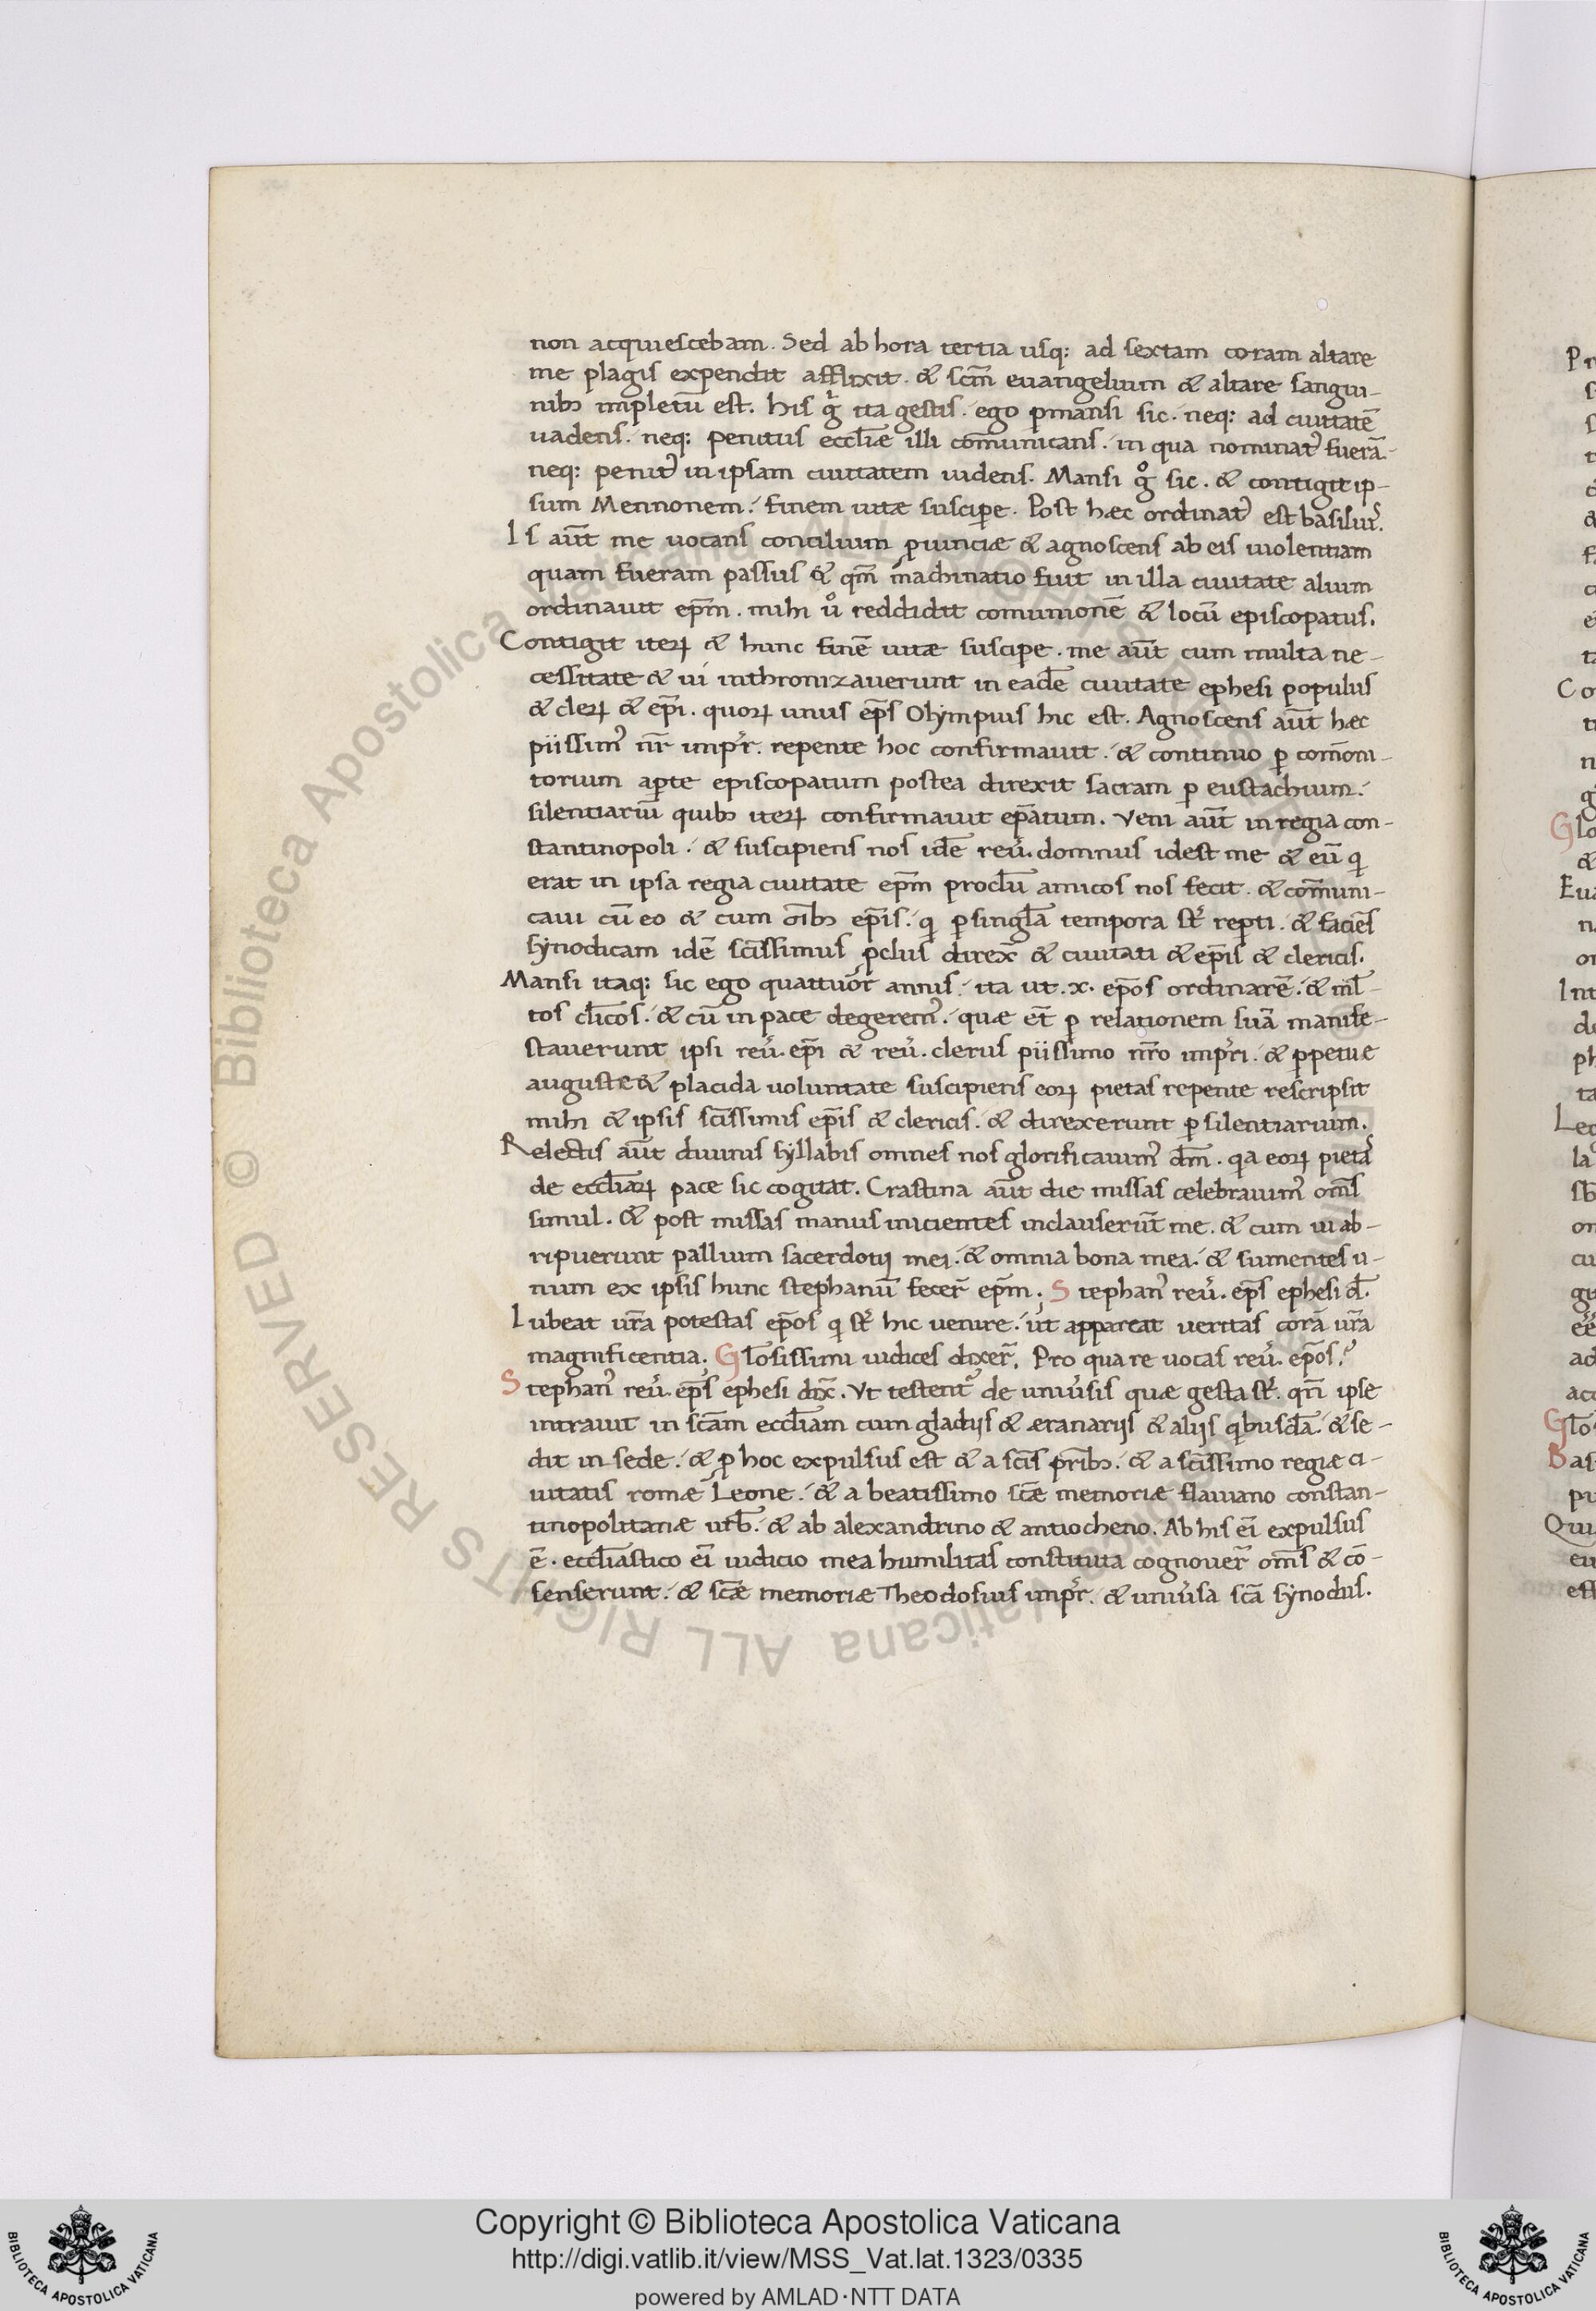 non acquiescebam. Sed ab hora tertia usq; ad sextam coram altare
me plagis expendit afflixit. & scm̄ euangelium & altare sangui-
nibꝫ impletū est. his g̍ ita gestis. ego ꝑmansi sic. neq; ad ciuitatē
uadens. neq; penitus eccl̄iæ illi com̄unicans. in qua nominatꝰ fuerā.
neq; penitꝰ in ipsam ciuitatem uidens. Mansi gͦ sic. & contigit ip-
sum Mennonem. finem uitæ suscipe. Post hæc ordinatꝰ est basiliuꝰ.
Is aūt me uocans concilium ꝓuinciæ & agnoscens ab eis uiolentiam
quam fueram passus & qm̄ machinatio fuit in illa ciuitate alium
ordinauit ep̄m. mihi uͦ reddidit comunionē & locū episcopatus.
Contigit iteꝝ & hunc finē uitæ suscipe. me aūt cum multa ne-
cessitate & ui inthronizauerunt in eadē ciuitate ephesi populus
& cleꝝ & ep̄i. quoꝝ unus ep̄s Olympius hic est. Agnoscens aūt hæc
piissimꝰ nr̄ impr̄. repente hoc confirmauit. & continuo ꝑ com̄oni-
torium aꝑte episcopatum postea direxit sacram ꝑ eustachium.
silentiariū quibꝫ iteꝝ confirmauit ep̄atum. Veni aūt in regia con-
stantinopoli. & suscipiens nos idē reu̓. domnus idest me & eū qi
erat in ipsa regia ciuitate ep̄m proclū amicos nos fecit. & com̄uni-
caui cū eo & cum oīb ep̄is. qi ꝑ singl̄a tempora st̄ repti. & faciēs
synodicam idē scīssimus ꝓclus direx̄ & ciuitati & ep̄is & clericis.
Mansi itaq; sic ego quattuor annis. ita ut .x. ep̄os ordinarē. & ml̄-
tos cl̄icos. & cū in pace degeremꝰ. quæ et̄ ꝑ relationem suā manife-
stauerunt ipsi reu̓. ep̄i & reu̓. clerus piissimo nr̄o imp̄ri. & ꝑpetuæ
augustæ & placida uoluntate suscipiens eoꝝ pietas repente rescripsit
mihi & ipsis scīssimis ep̄is & clericis. & direxerunt ꝑ silentiarium.
Relectis aūt diuinis syllabis omnes nos glorificauimꝰ dm̄. qa eoꝝ pietaꝰ
de eccl̄iaꝝ pace sic cogitat. Crastina aūt die missas celebrauimꝰ om̄s
simul. & post missas manus inicientes inclauserūt me. & cum ui ab-
ripuerunt pallium sacerdotij mei. & omnia bona mea. & sumentes u-
num ex ipsis hunc stephanū fecer̄ ep̄m. Stephanꝰ reu̓. ep̄s ephesi d̄.
Iubeat ur̄a potestas ep̄os qi st̄ hic uenire. ut appareat ueritas corā ur̄a
magnificentia. Gl̄osissimi iudices dixer̄. Pro qua re uocas reu̓. ep̄os?
Stephanꝰ reu̓. ep̄s ephesi dix̄. Vt testent᷑ de uniu̓sis quæ gesta st̄. qn̄ ipse
intrauit in scām eccl̄iam cum gladijs & æranarijs & alijs qibusdā. & se-
dit in sede. & ꝑ hoc expulsus est & a scīs pr̄ibꝫ. & a scīssimo regiæ ci-
uitatis romæ Leone. & a beatissimo scǣ memoriæ flauiano constan-
tinopolitanæ urb̄. & ab alexandrino & antiocheno. Ab his eī expulsus
ē. eccl̄iastico eī iudicio mea humilitas constituta cognouer̄ om̄s & cō-
senserunt. & scǣ memoriæ Theodosius impr̄. & uniu̓sa scā synodus.
Copyright © Biblioteca Apostolica Vaticana
http://digi.vatlib.it/view/MSS_Vat.lat.1323/0335
powered by AMLAD·NTT DATA